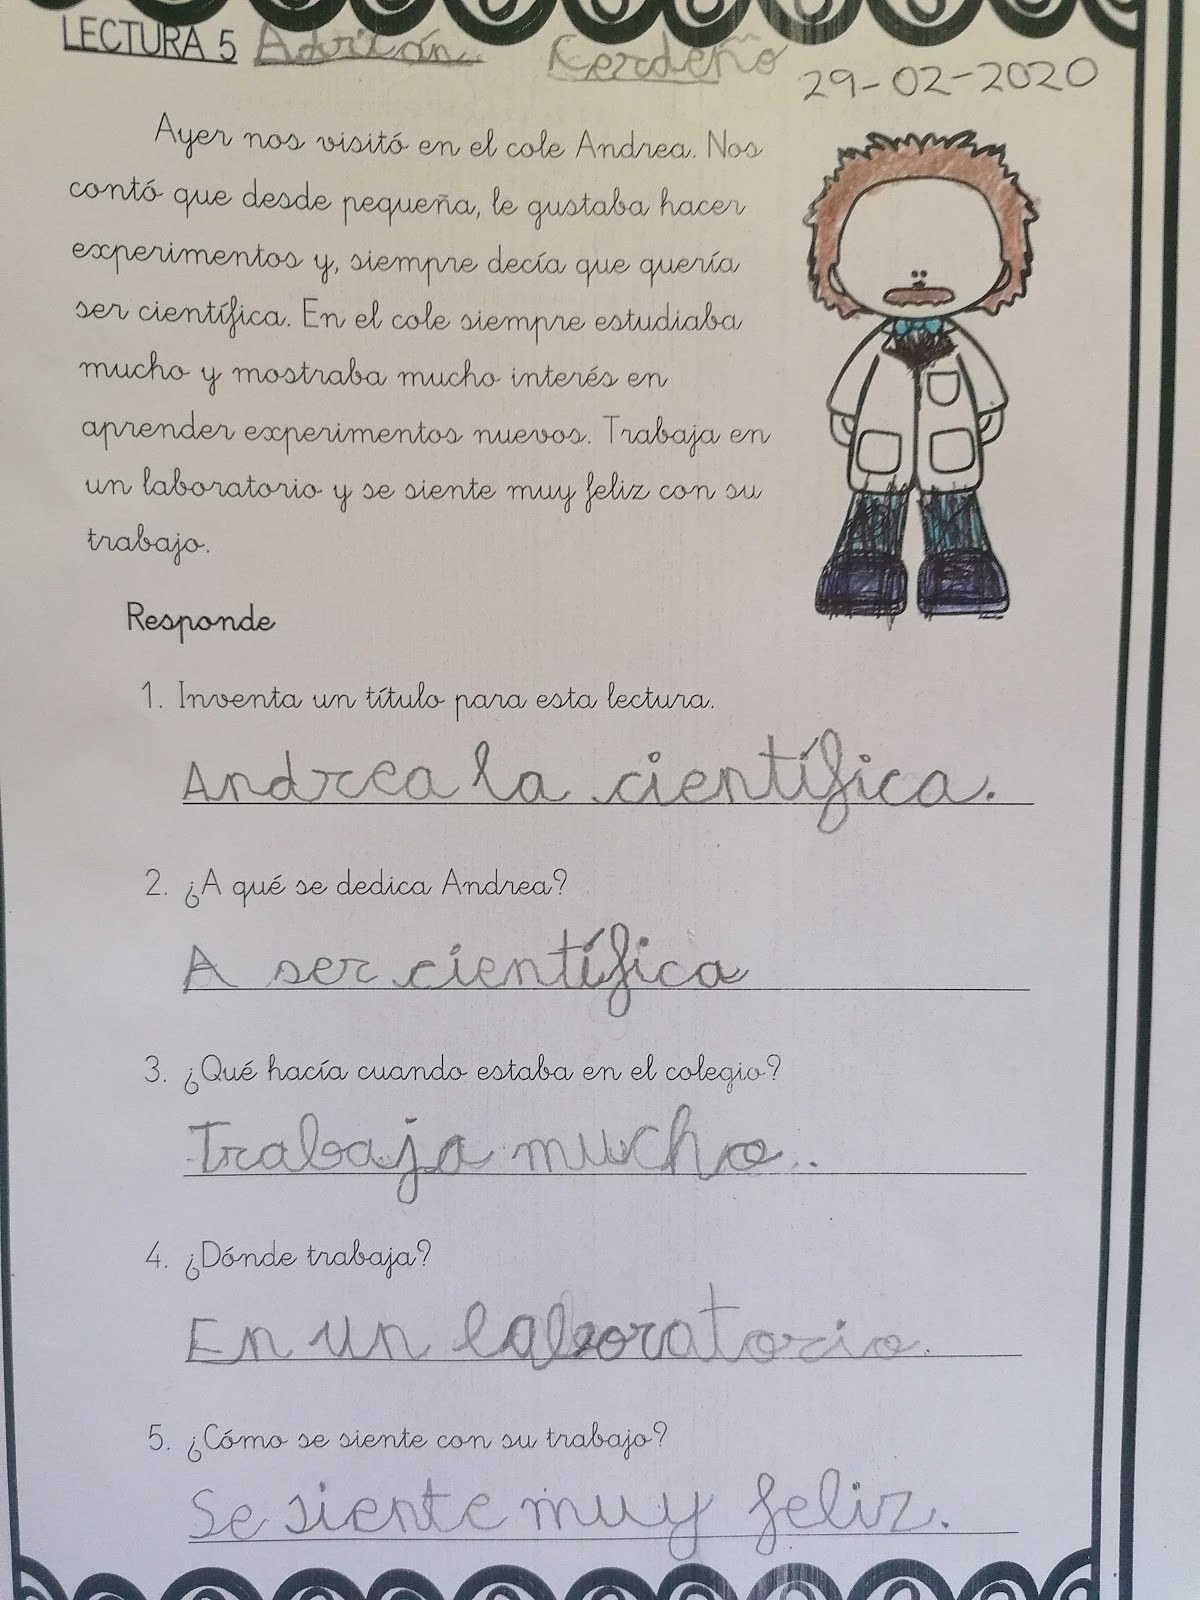 LECTURA 5 Adrián Cerdeño 29-02-2020
Ayer nos visitó en el cole Andrea. Nos
contó que desde pequeña, le gustaba hacer
experimentos y, siempre decía que quería
ser científica. En el cole siempre estudiaba
mucho y mostraba mucho interés en
aprender experimentos nuevos. Trabaja en
un laboratorio y se siente muy feliz con su
trabajo.
Responde
1. Inventa un título para esta lectura.
Andrea la científica.
2. ¿A qué se dedica Andrea?
A ser científica
3. ¿Qué hacía cuando estaba en el colegio?
Trabaja mucho..
4. ¿Dónde trabaja?
En un laboratorio.
5. ¿Cómo se siente con su trabajo?
Se siente muy feliz.